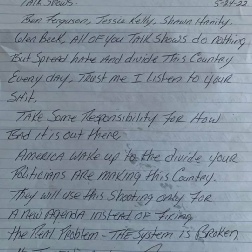 Talk Shows. 5-24-22
Ben Ferguson, Jessie Kelly, Shawn Hanity.
Glen Beck, All of You Talk Shows do Nothing
But Spread hate and divide This Country
Every day. Trust me I listen to your
Shit.
Take Some Responsibility For How
Bad it is out there
America wake up to the divide your
Politicians are making this Country.
They will use this Shooting only for
A New Agenda instead of Fixing
the Real Problem - The System is Broken